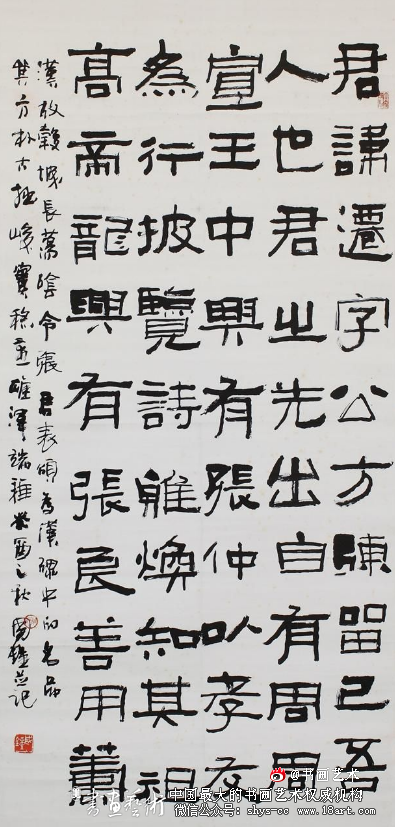 君諱遷字公方陳留己吾
人也君之先出自有周周
宣王中興有張仲以孝友
為行披覽詩雅煥知其祖
高帝龍興有張良善用籌
漢故穀城長蕩陰令張君表頌為漢碑中的名品
其方朴古拙峻實穩重雄渾端雅癸酉之秋
@书画艺术
書畫藝術
中国最大的书画艺术权威机构
微信公众号: shys-cc www.18art.com